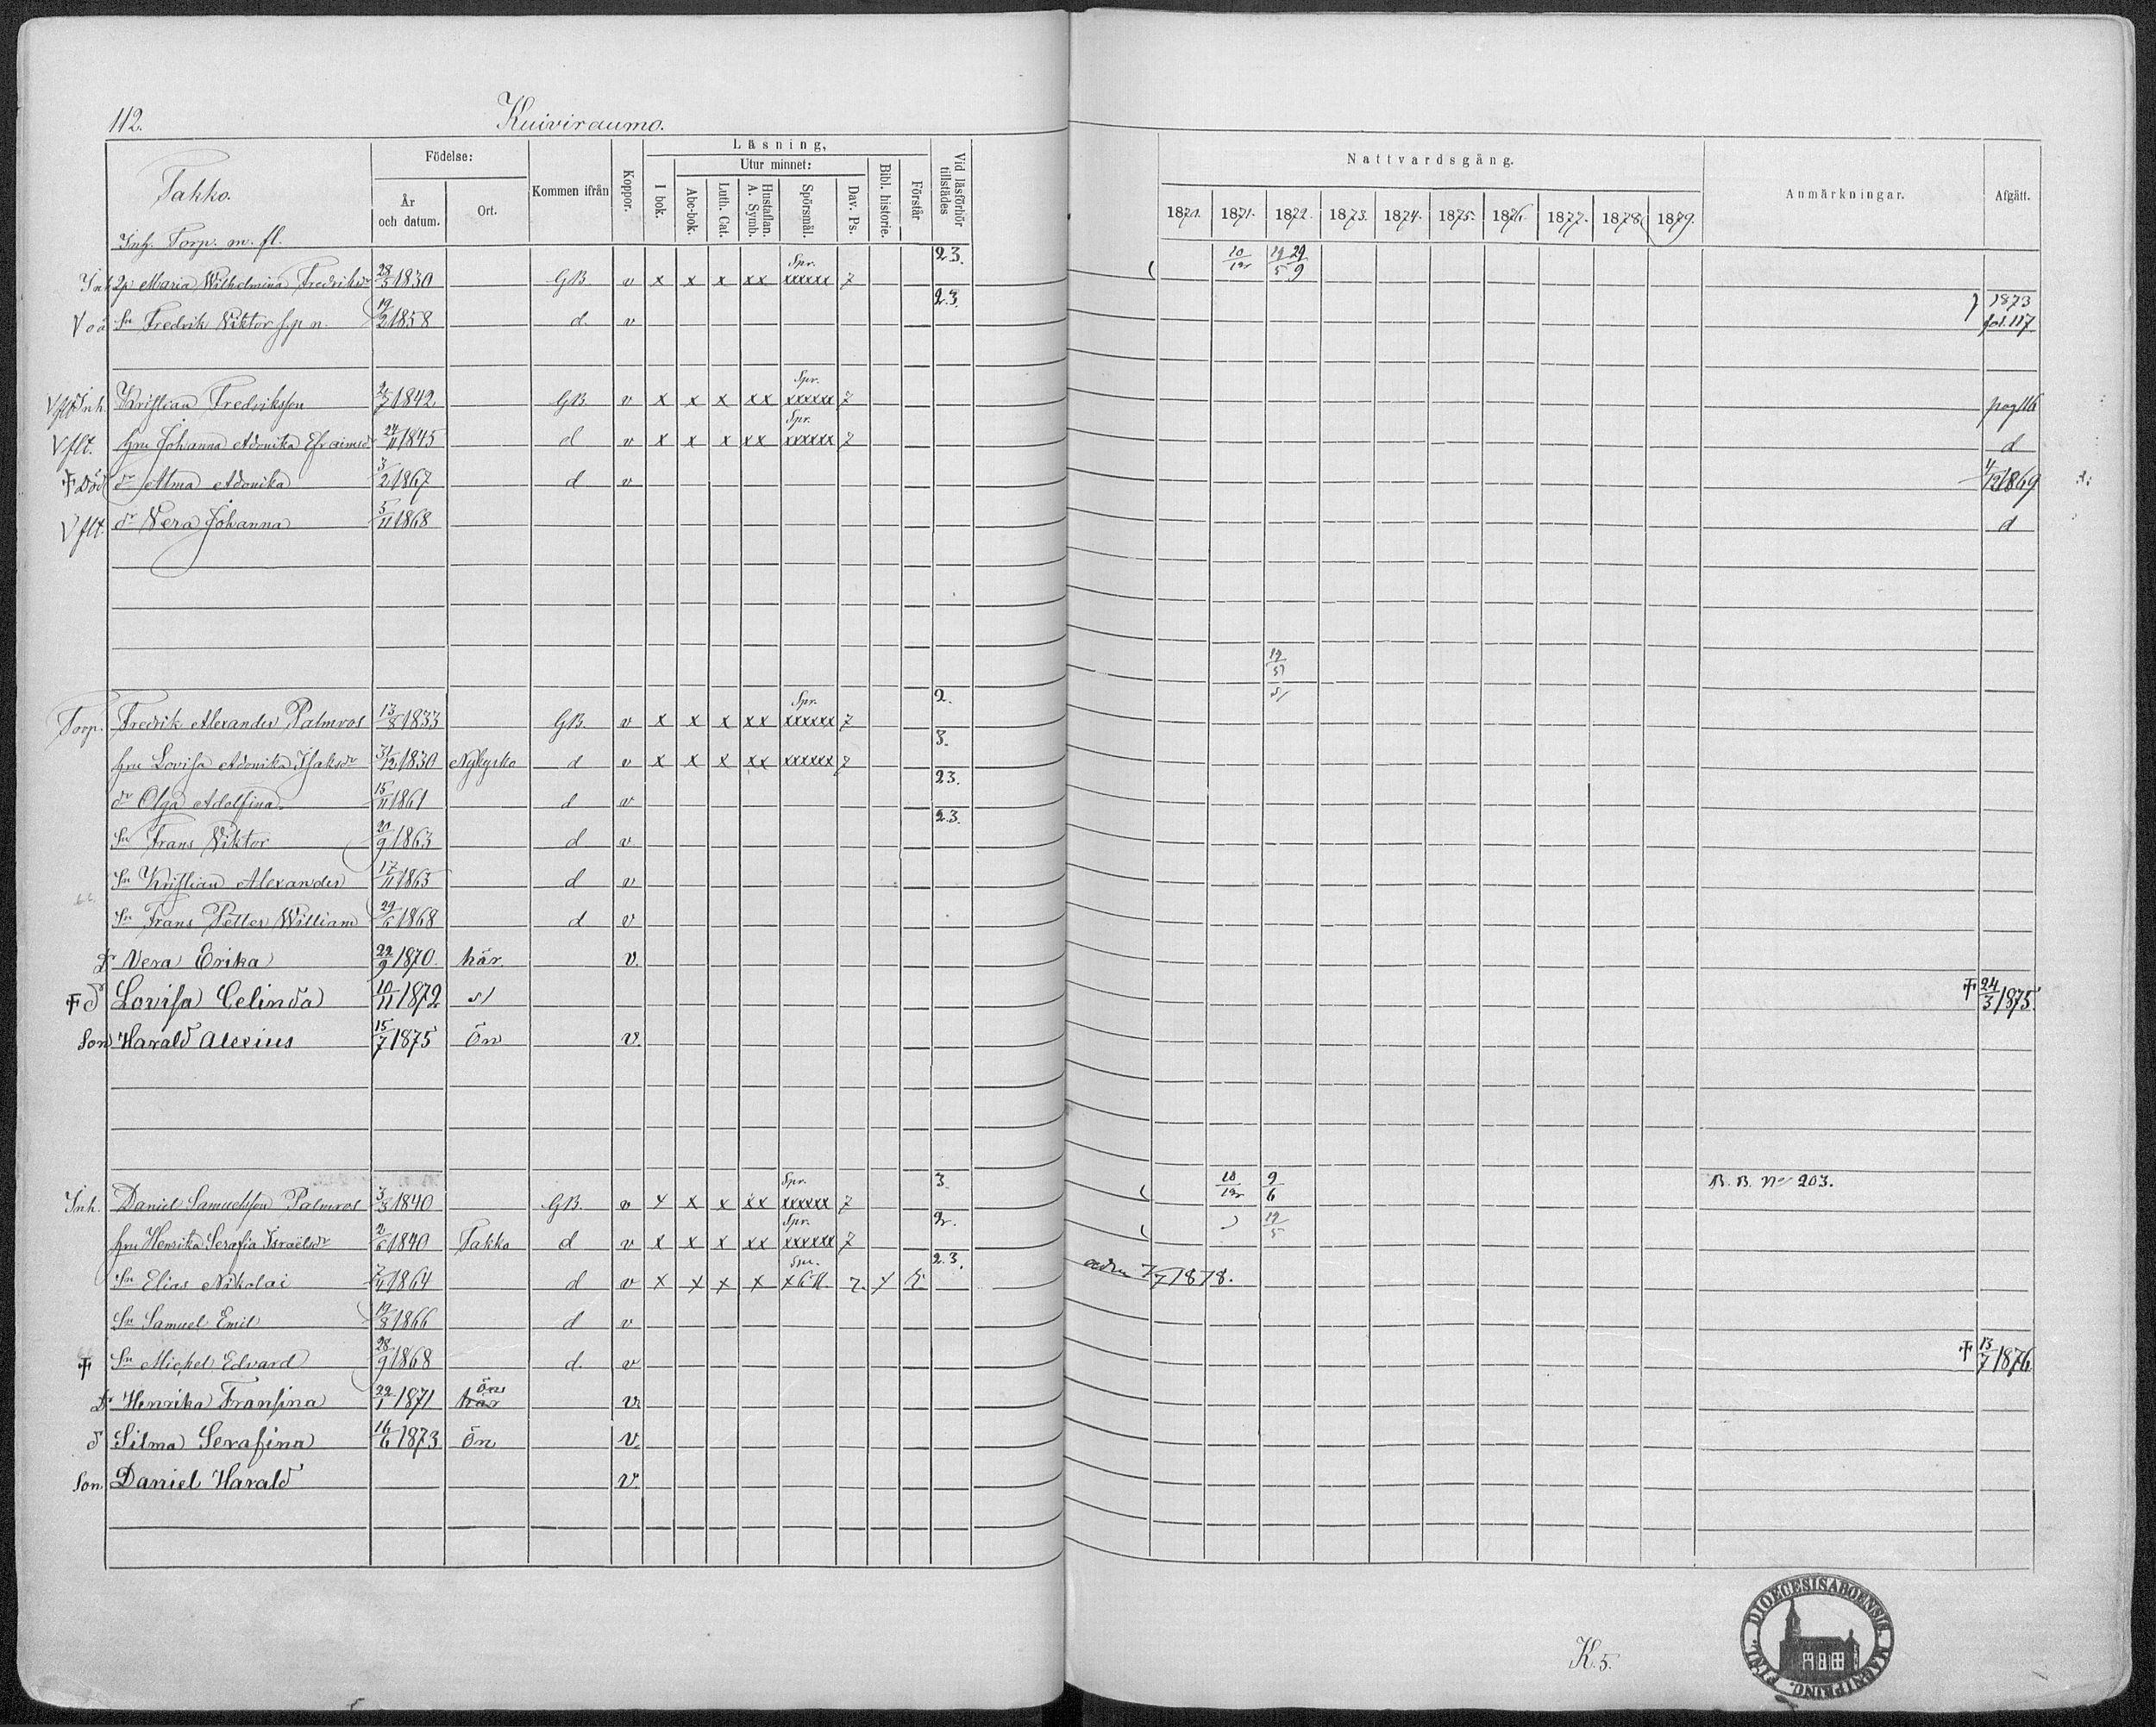 112.
Kuiviraumo.
Takko.
Inh. Torp. m. fl.
Födelse:
År och datum.
Ort.
Kommen ifrån
Koppor.
Läsning,
I bok.
Utur minnet:
Abc-bok.
Luth. Cat.
Hustaflan. A. Symb.
Spörsmål.
Dav. Ps.
Bibl. historie.
Förstår
Vid läsförhör tillstädes
Nattvardsgång.
1870. 1871. 1872. 1873. 1874. 1875. 1876. 1877. 1878. 1879.
Anmärkningar.
Afgått.
Inh qp Maria Wilhelmina Fredriksdr 28/5 1830 GB v x x x xx Spr. xxxxxx 7 23. 10/12 19/5 29/9
Sn Fredrik Viktor f.p.n. 19/2 1858 d. v 23. 1873 fol. 117
Vflt Inh. Kristian Fredriksson 2/7 1842 GB v x x x xx Spr. xxxxxx 7 pag 116
Vflt. hru Johanna Adonika Efraimsdr 24/11 1845 d v x x x xx Spr. xxxxxx 7 d
Död dr Alma Adonika 3/2 1867 d v 4/12 1869
Vflt. dr Vera Johanna 5/11 1868 d
19/5
Torp. Fredrik Alexander Palmros 13/8 1833 GB v x x x xx Spr. xxxxxx 7 2. s/
hru Lovisa Adonika Isaksdr 31/12 1830 Nykyrko d v x x x xx xxxxxx 7 3.
dr Olga Adolfina 15/11 1861 d v 23.
Sn Frans Viktor 20/9 1863 d v 23.
Sn Kristian Alexander 17/11 1865 d v
Sn Frans Petter William 29/6 1868 d v
D Vera Erika 22/9 1870. här v.
d Lovisa Celinda 10/11 1872 s/ 24/3 1875.
Son Harald Alexius 15/7 1875 Ön v.
Inh. Daniel Samuelsson Palmros 3/3 1840 GB v x x x xx Spr. xxxxxx 7 3. 10/12 9/6 B. B. No 203.
hru Henrika Serafia Israëlsdr 2/6 1840 Takko d v x x x xx Spr. xxxxxx 7 2. 19/5
Sn Elias Nikolai 7/4 1864 d v x x x x Spr. 7. 23. adm 7/7 1878.
Sn Samuel Emil 19/8 1866 d v
Sn Michel Edvard 28/9 1868 d. v 13/7 1876
D Henrika Fransina 22/1 1871 här ön v.
d Silma Serafina 16/6 1873 Ön v.
Son. Daniel Harald v.
K. 5.
DIOECESIS ABOENSIS. MAGNI PRINC. FINL.